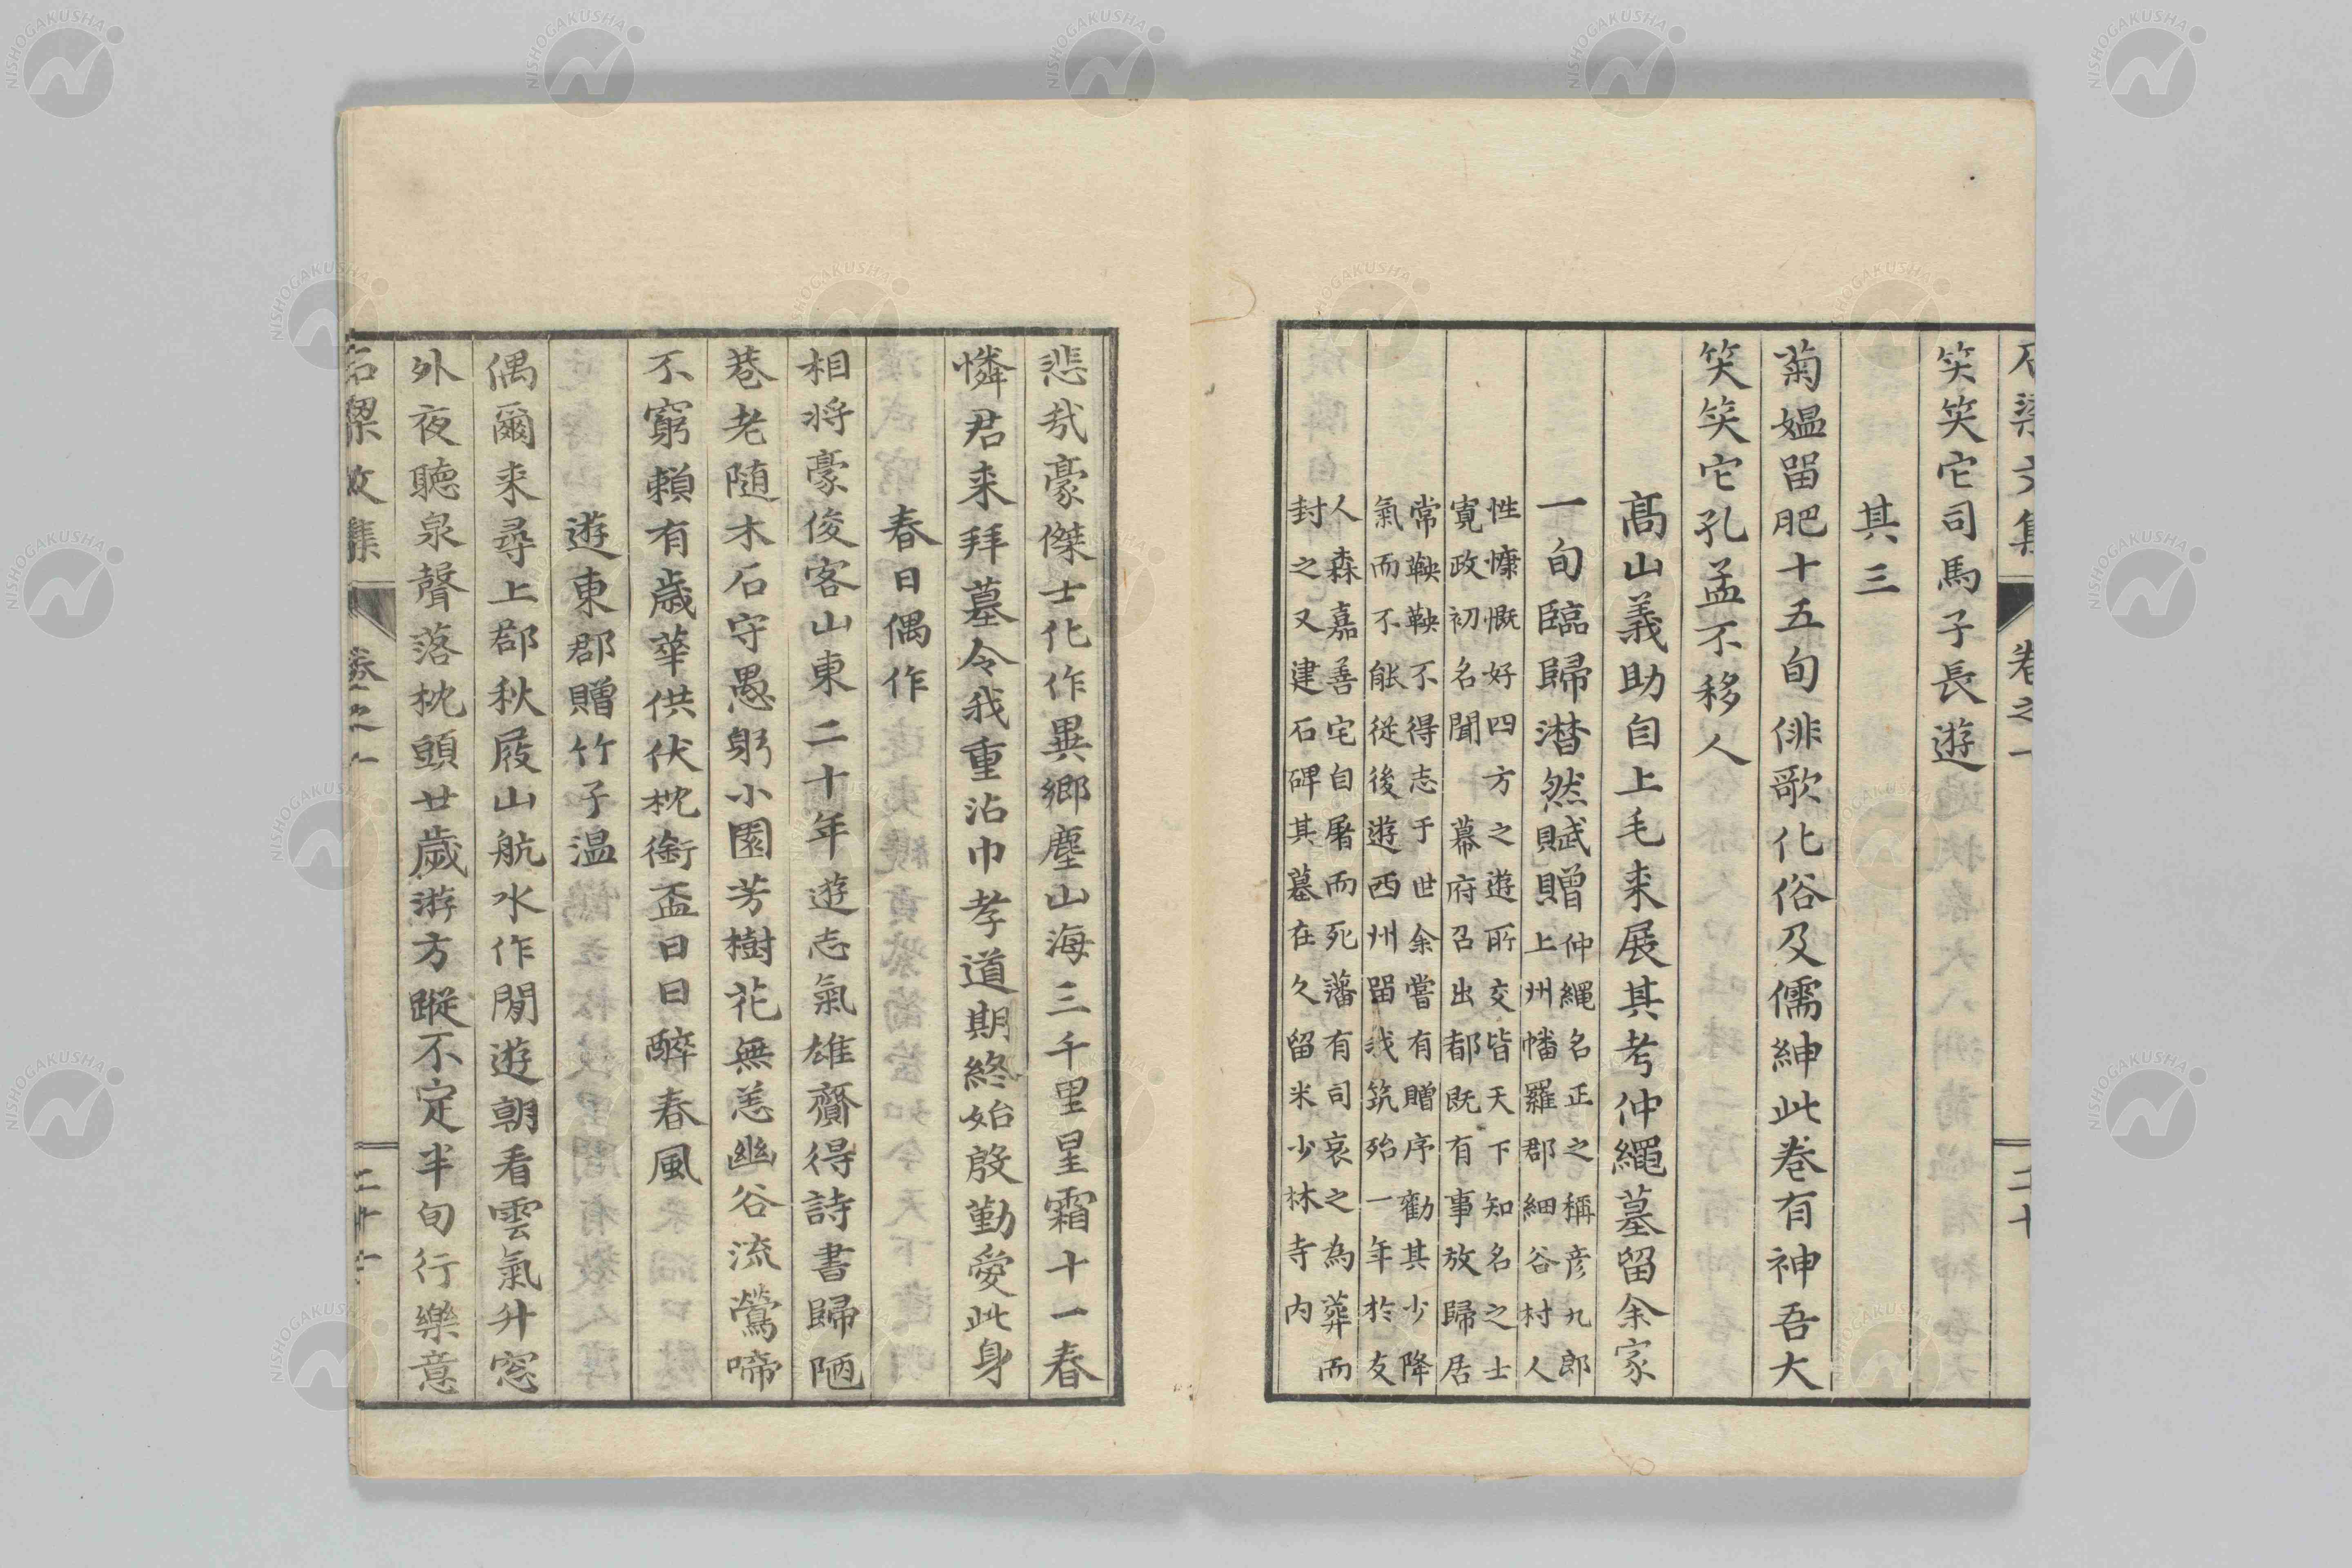 笑笑它司馬子長遊
其三
菊媼畱肥十五旬俳歌化俗及儒紳此巻有神吾大
笑笑它孔孟不移人
髙山義助自上毛来展其考仲繩墓留余家
一旬臨歸潸然賦贈
仲繩名正之稱彦九郎
上州幡羅郡細谷村人
性慷慨好四方之遊所交皆天下知名之士
寛政初名聞 幕府召出都既有事放歸居
常鞅鞅不得志于世余嘗有贈序勸其少降
氣而不能従後遊西州畱我筑殆一年於友
人森嘉善宅自屠而死藩有司哀之為葬而
封之又建石碑其墓在久留米少林寺内
悲哉豪傑士化作異郷塵山海三千里星霜十一春
憐君来拜墓令我重沾巾孝道期終始殷勤愛此身
春日偶作
相将豪俊客山東二十年遊志氣雄齎得詩書歸陋
巷老随木石守愚躬小園芳樹花無恙幽谷流鶯啼
不窮頼有歳華供伏枕銜盃日日醉春風
遊東郡贈竹子温
偶爾来尋上郡秋屐山航水作閒遊朝看雲氣升窓
外夜聽泉聲落枕頭廿歲游方蹤不定半旬行樂意
石梁文集 巻之一 二十
NISHOGAKUSHA